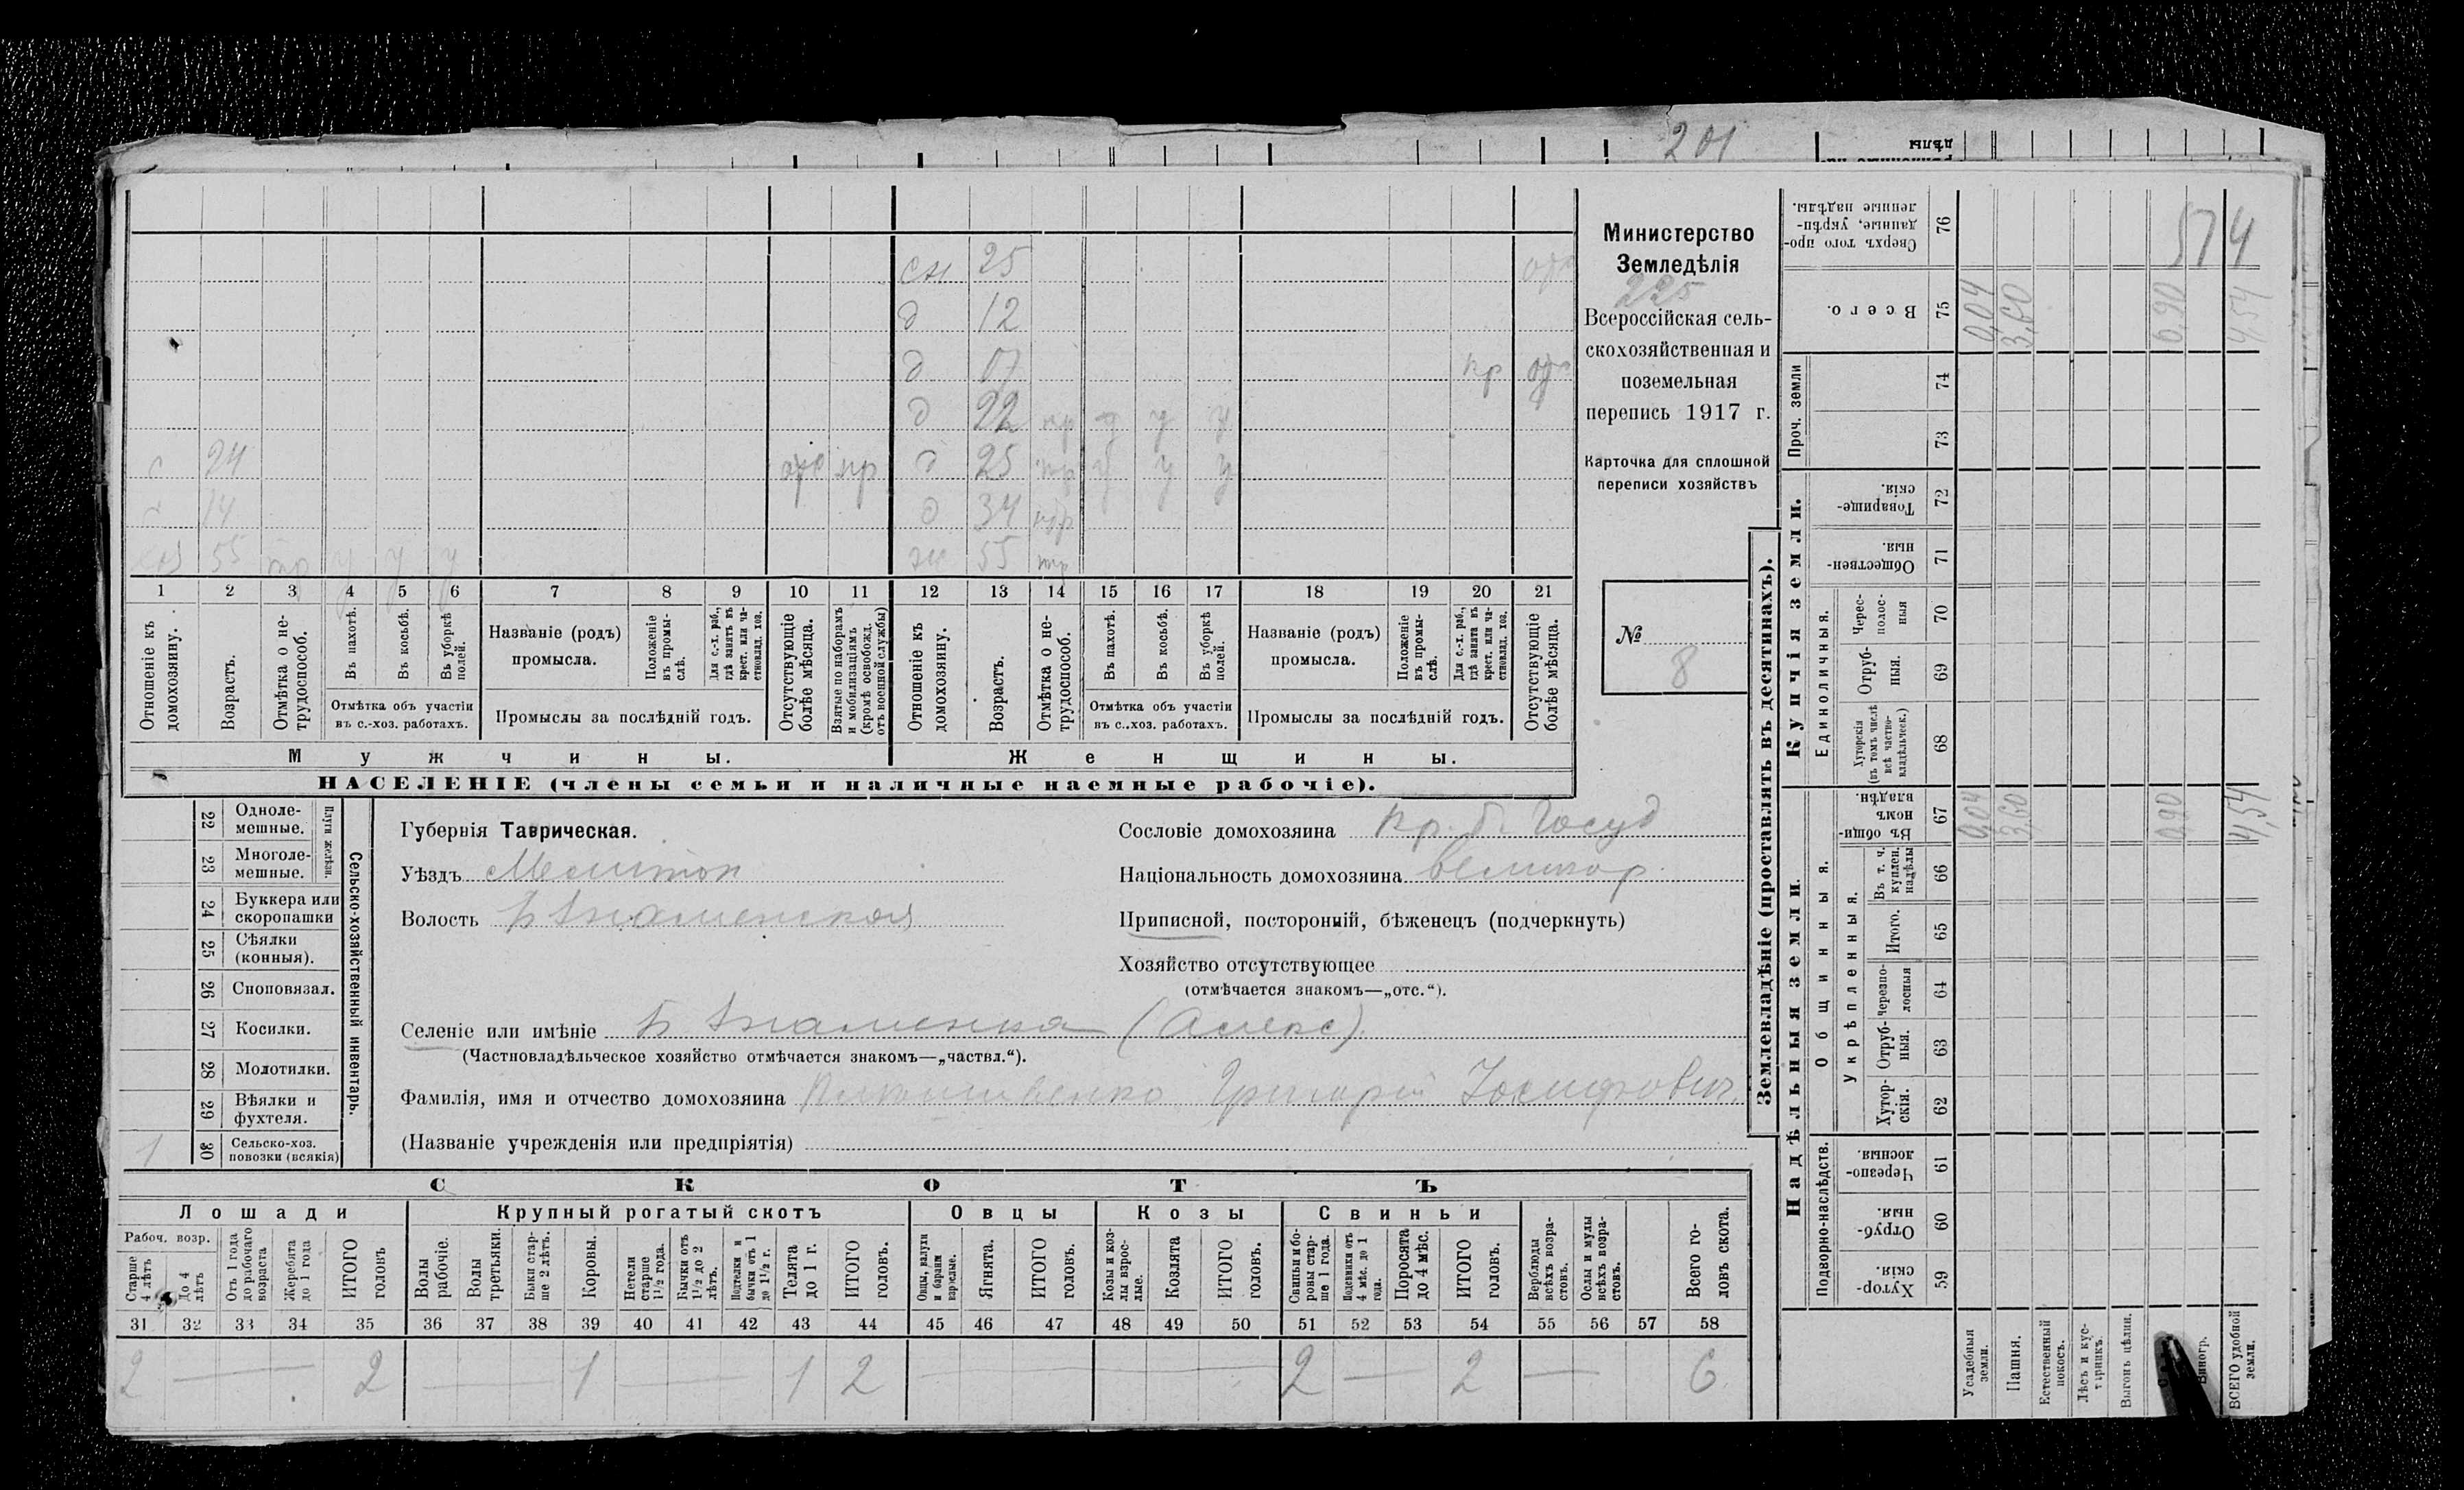 201
сн 25
д 12
д 17 пр
д 22 пр у у у
с 24 отс пр д 25 пр у у у
с 14 д 34 пр
хоз 55 пр у у у ж 55 пр
1 2 3 4 5 6 7 8 9 10 11 12 13 14 15 16 17 18 19 20 21
Отношеніе къ домохозяину.
Возрастъ.
Отмѣтка о нетрудоспособ.
Въ пахотѣ.
Въ косьбѣ.
Въ уборкѣ полей.
Отмѣтка объ участіи въ с.-хоз. работахъ.
Названіе (родъ) промысла.
Положеніе въ промыслѣ.
Для с.-х. раб., гдѣ занятъ въ крест. или частновлад. хоз.
Промыслы за послѣдній годъ.
Отсутствующіе болѣе мѣсяца.
Взятые по наборамъ и мобилизаціямъ (кромѣ освобожд. отъ военной службы)
Отношеніе къ домохозяину.
Возрастъ.
Отмѣтка о нетрудоспособ.
Въ пахотѣ.
Въ косьбѣ.
Въ уборкѣ полей.
Отмѣтка объ участіи въ с..хоз. работахъ.
Названіе (родъ) промысла.
Положеніе въ промыслѣ.
Для с.-х. раб., гдѣ занята въ крест. или частновлад. хоз.
Промыслы за послѣдній годъ.
Отсутствующіе болѣе мѣсяца.
Мужчины. Женщины.
НАСЕЛЕНІЕ (члены семьи и наличные наемные рабочіе).
Министерство
Земледѣлія
225
Всероссійская сель-
скохозяйственная и
поземельная
перепись 1917 г.
Карточка для сплошной
переписи хозяйствъ
№
8
22 Одноле-мешные.
23 Многоле-мешные.
Плуги желѣзн.
24 Буккера или скоропашки
25 Сѣялки (конныя).
26 Сноповязал.
27 Косилки.
28 Молотилки.
29 Вѣялки и фухтеля.
30 Сельско-хоз. повозки (всякія)
1
Сельско-хозяйственный инвентарь.
Губернія Таврическая.
Уѣздъ Мелитоп
Волость Б Знаменская
Сословіе домохозяина кр. б. Госуд
Національность домохозяина великор.
Приписной, посторонній, бѣженецъ (подчеркнуть)
Хозяйство отсутствующее
(отмѣчается знакомъ—„отс.“).
Селеніе или имѣніе Б Знаменка (Алекс).
(Частновладѣльческое хозяйство отмѣчается знакомъ—„частвл.“).
Фамилія, имя и отчество домохозяина Григорій Іосифович
(Названіе учрежденія или предпріятія)
СКОТЪ
Лошади Крупный рогатый скотъ Овцы Козы Свиньи
Рабоч. возр.
Старше 4 лѣтъ
До 4 лѣтъ
Отъ 1 года до рабочаго возраста
Жеребята до 1 года
ИТОГО головъ
Волы рабочіе.
Волы третьяки.
Быки старше 2 лѣтъ.
Коровы.
Нетели старше 1½ года.
Бычки отъ 1½ до 2 лѣтъ.
Подтелки и бычки отъ 1 до 1½ г.
Телята до 1 г.
ИТОГО головъ.
Овцы, валухи и бараны взрослые.
Ягнята.
ИТОГО головъ.
Козы и козлы взрослые.
Козлята
ИТОГО головъ.
Свиньи и боровы старше 1 года.
Подсвинки отъ 4 мѣс. до 1 года.
Поросята до 4 мѣс.
ИТОГО головъ.
Верблюды всѣхъ возрастовъ.
Ослы и мулы всѣхъ возрастовъ.
Всего головъ скота.
31 32 33 34 35 36 37 38 39 40 41 42 43 44 45 46 47 48 49 50 51 52 53 54 55 56 57 58
2 — 2 — 1 — 1 2 — 2 — 2 — 6
Землевладѣніе (проставлять въ десятинахъ).
Надѣльныя земли. Купчія земли. Проч. земли
Подворно-наслѣдств. Общинныя. Единоличныя.
Укрѣпленныя.
Хутор-скія. 59
Отруб-ныя. 60
Черезпо-лосныя. 61
Хутор-скія. 62
Отруб-ныя. 63
Черезпо-лосныя 64
Итого. 65
Въ т. ч. куплен. надѣлы 66
Въ общин-номъ владѣн. 67
Хуторскія (въ томъ числѣ всѣ частновладѣльческ.) 68
Отруб-ныя. 69
Черес-полос-ныя 70
Обществен-ныя. 71
Товарище-скія. 72
73
74
Всего. 75
Сверхъ того проданные, укрѣпленные надѣлы. 76
Усадебныя земли.
Пашня.
Естественный покосъ.
Лѣсъ и кустарникъ.
Выгонъ цѣлин.
Виногр.
ВСЕГО удобной земли.
0,04 3,60 0,90 4,54
0,04 3,60 0,90 4,54
574